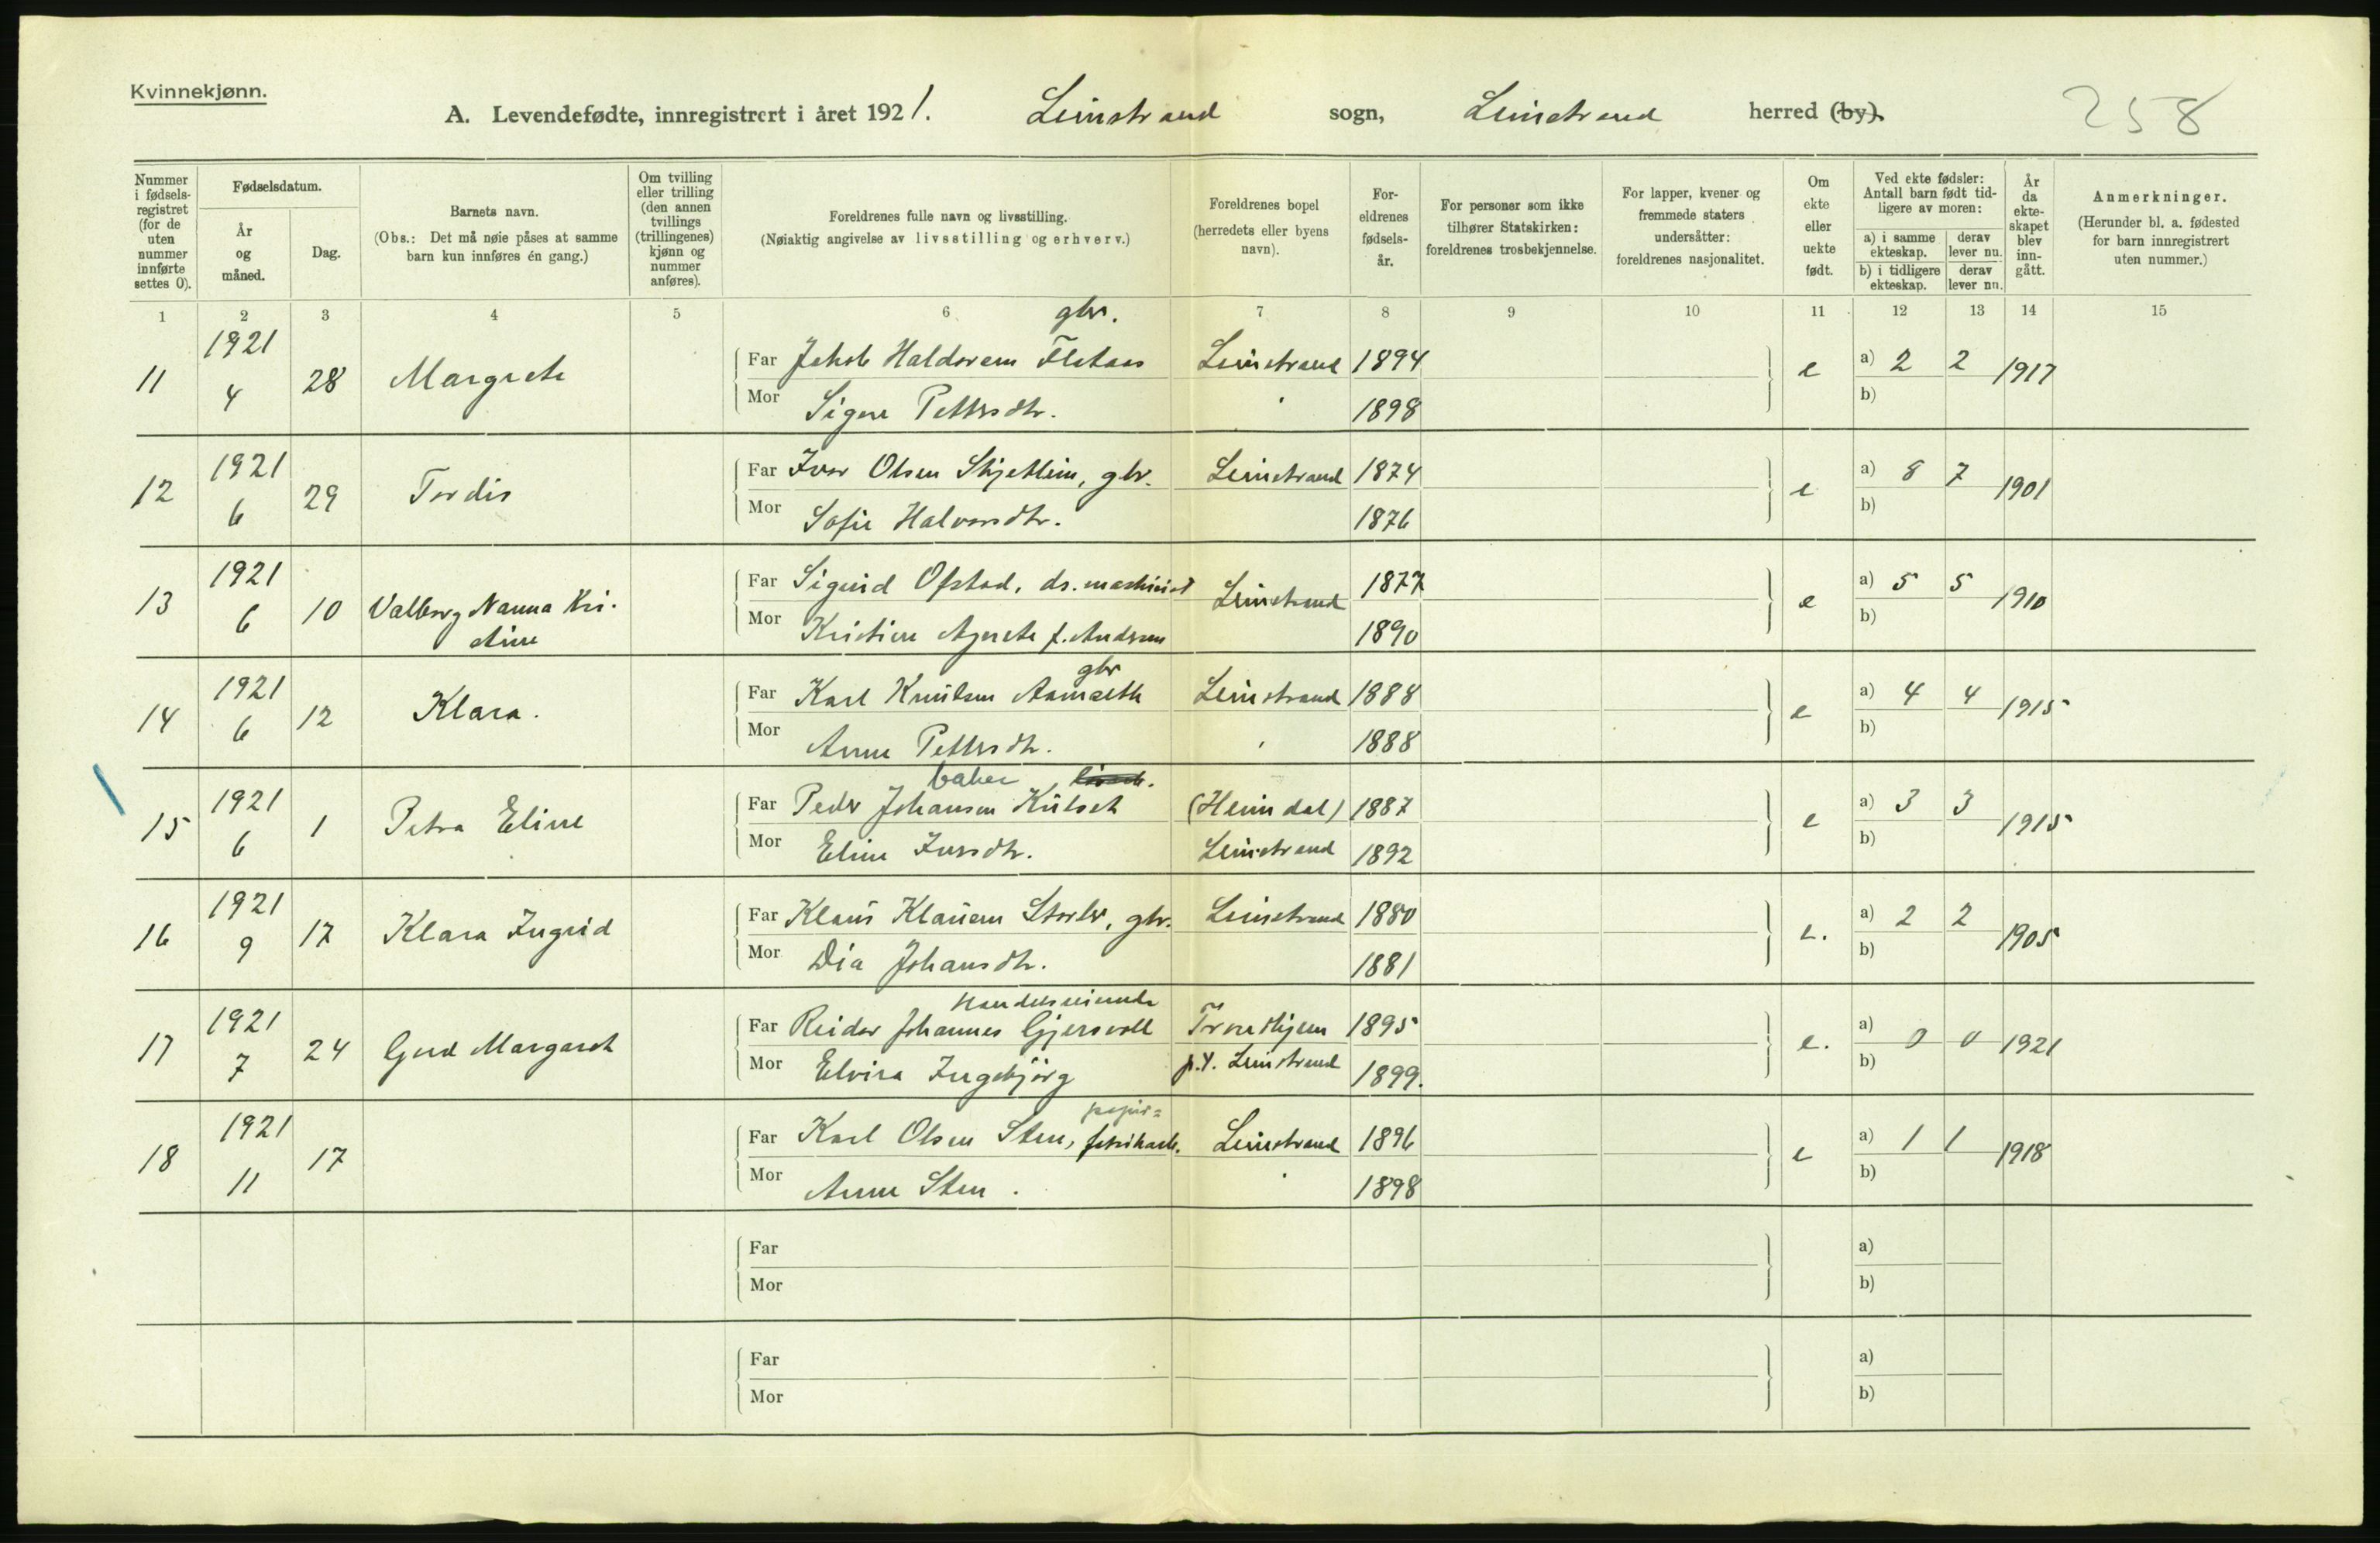 Kvinnekjønn.
A. Levendefødte, innregistrert i året 1921. Leinstrand sogn, Leinstrand herred (by).
258
Nummer i fødsels-registret (for de uten nummer innførte settes 0).
Fødselsdatum.
År og måned.
Dag.
Barnets navn.
(Obs.: Det må nøie påses at samme barn kun innføres én gang.)
Om tvilling eller trilling (den annen tvillings (trillingenes) kjønn og nummer anføres).
Foreldrenes fulle navn og livsstilling.
(Nøiaktig angivelse av livsstilling og erhverv.)
Foreldrenes bopel (herredets eller byens navn).
For-eldrenes fødsels-år.
For personer som ikke tilhører Statskirken: foreldrenes trosbekjennelse.
For lapper, kvener og fremmede staters undersåtter: foreldrenes nasjonalitet.
Om ekte eller uekte født.
Ved ekte fødsler: Antall barn født tid-ligere av moren:
a) i samme ekteskap.
derav lever nu.
b) i tidligere ekteskap.
derav lever nu.
År da ekte-skapet blev inn-gått.
Anmerkninger.
(Herunder bl. a. fødested for barn innregistrert uten nummer.)
1 2 3 4 5 6 7 8 9 10 11 12 13 14 15
gbr.
11 1921 4 28 Margrete Far Jakob Haldorsen Flataas Leinstrand 1894 e a) 2 2 1917
Mor Signe Pettersdtr. 1898 b)
12 1921 6 29 Tordis Far Ivar Olsen Skjetlein, gbr. Leinstrand 1874 e a) 8 7 1901
Mor Sofie Halvorsdtr. 1876 b)
13 1921 6 10 Valborg Nanna Kri-stine Far Sigurd Ofstad, ds. maskinist Leinstrand 1877 e a) 5 5 1910
Mor Kristine Agnete f. Andersen 1890 b)
gbr
14 1921 6 12 Klara. Far Karl Knutsen Leinstrand 1888 e a) 4 4 1915
Mor Anne Pettersdtr. 1888 b)
baker
15 1921 6 1 Petra Eline Far Peder Johansen (Heimdal) 1887 e a) 3 3 1915
Mor Eline Leinstrand 1892 b)
16 1921 9 17 Klara Ingrid Far Klaus Klausen Storler, gbr. Leinstrand 1880 e. a) 2 2 1905
Mor Dia Johansdtr. 1881 b)
Handelsreisende
17 1921 7 24 Gerd Margaret Far Reidar Johannes Gjersvoll Trondhjem 1895 e. a) 0 0 1921
Mor Elvira Ingebjørg p.t. Leinstrand 1899. b)
papir=
18 1921 11 17 Far Karl Olsen Sten, fabrikarb. Leinstrand 1896 e a) 1 1 1918
Mor Anne Sten. 1898 b)
Far a)
Mor b)
Far a)
Mor b)